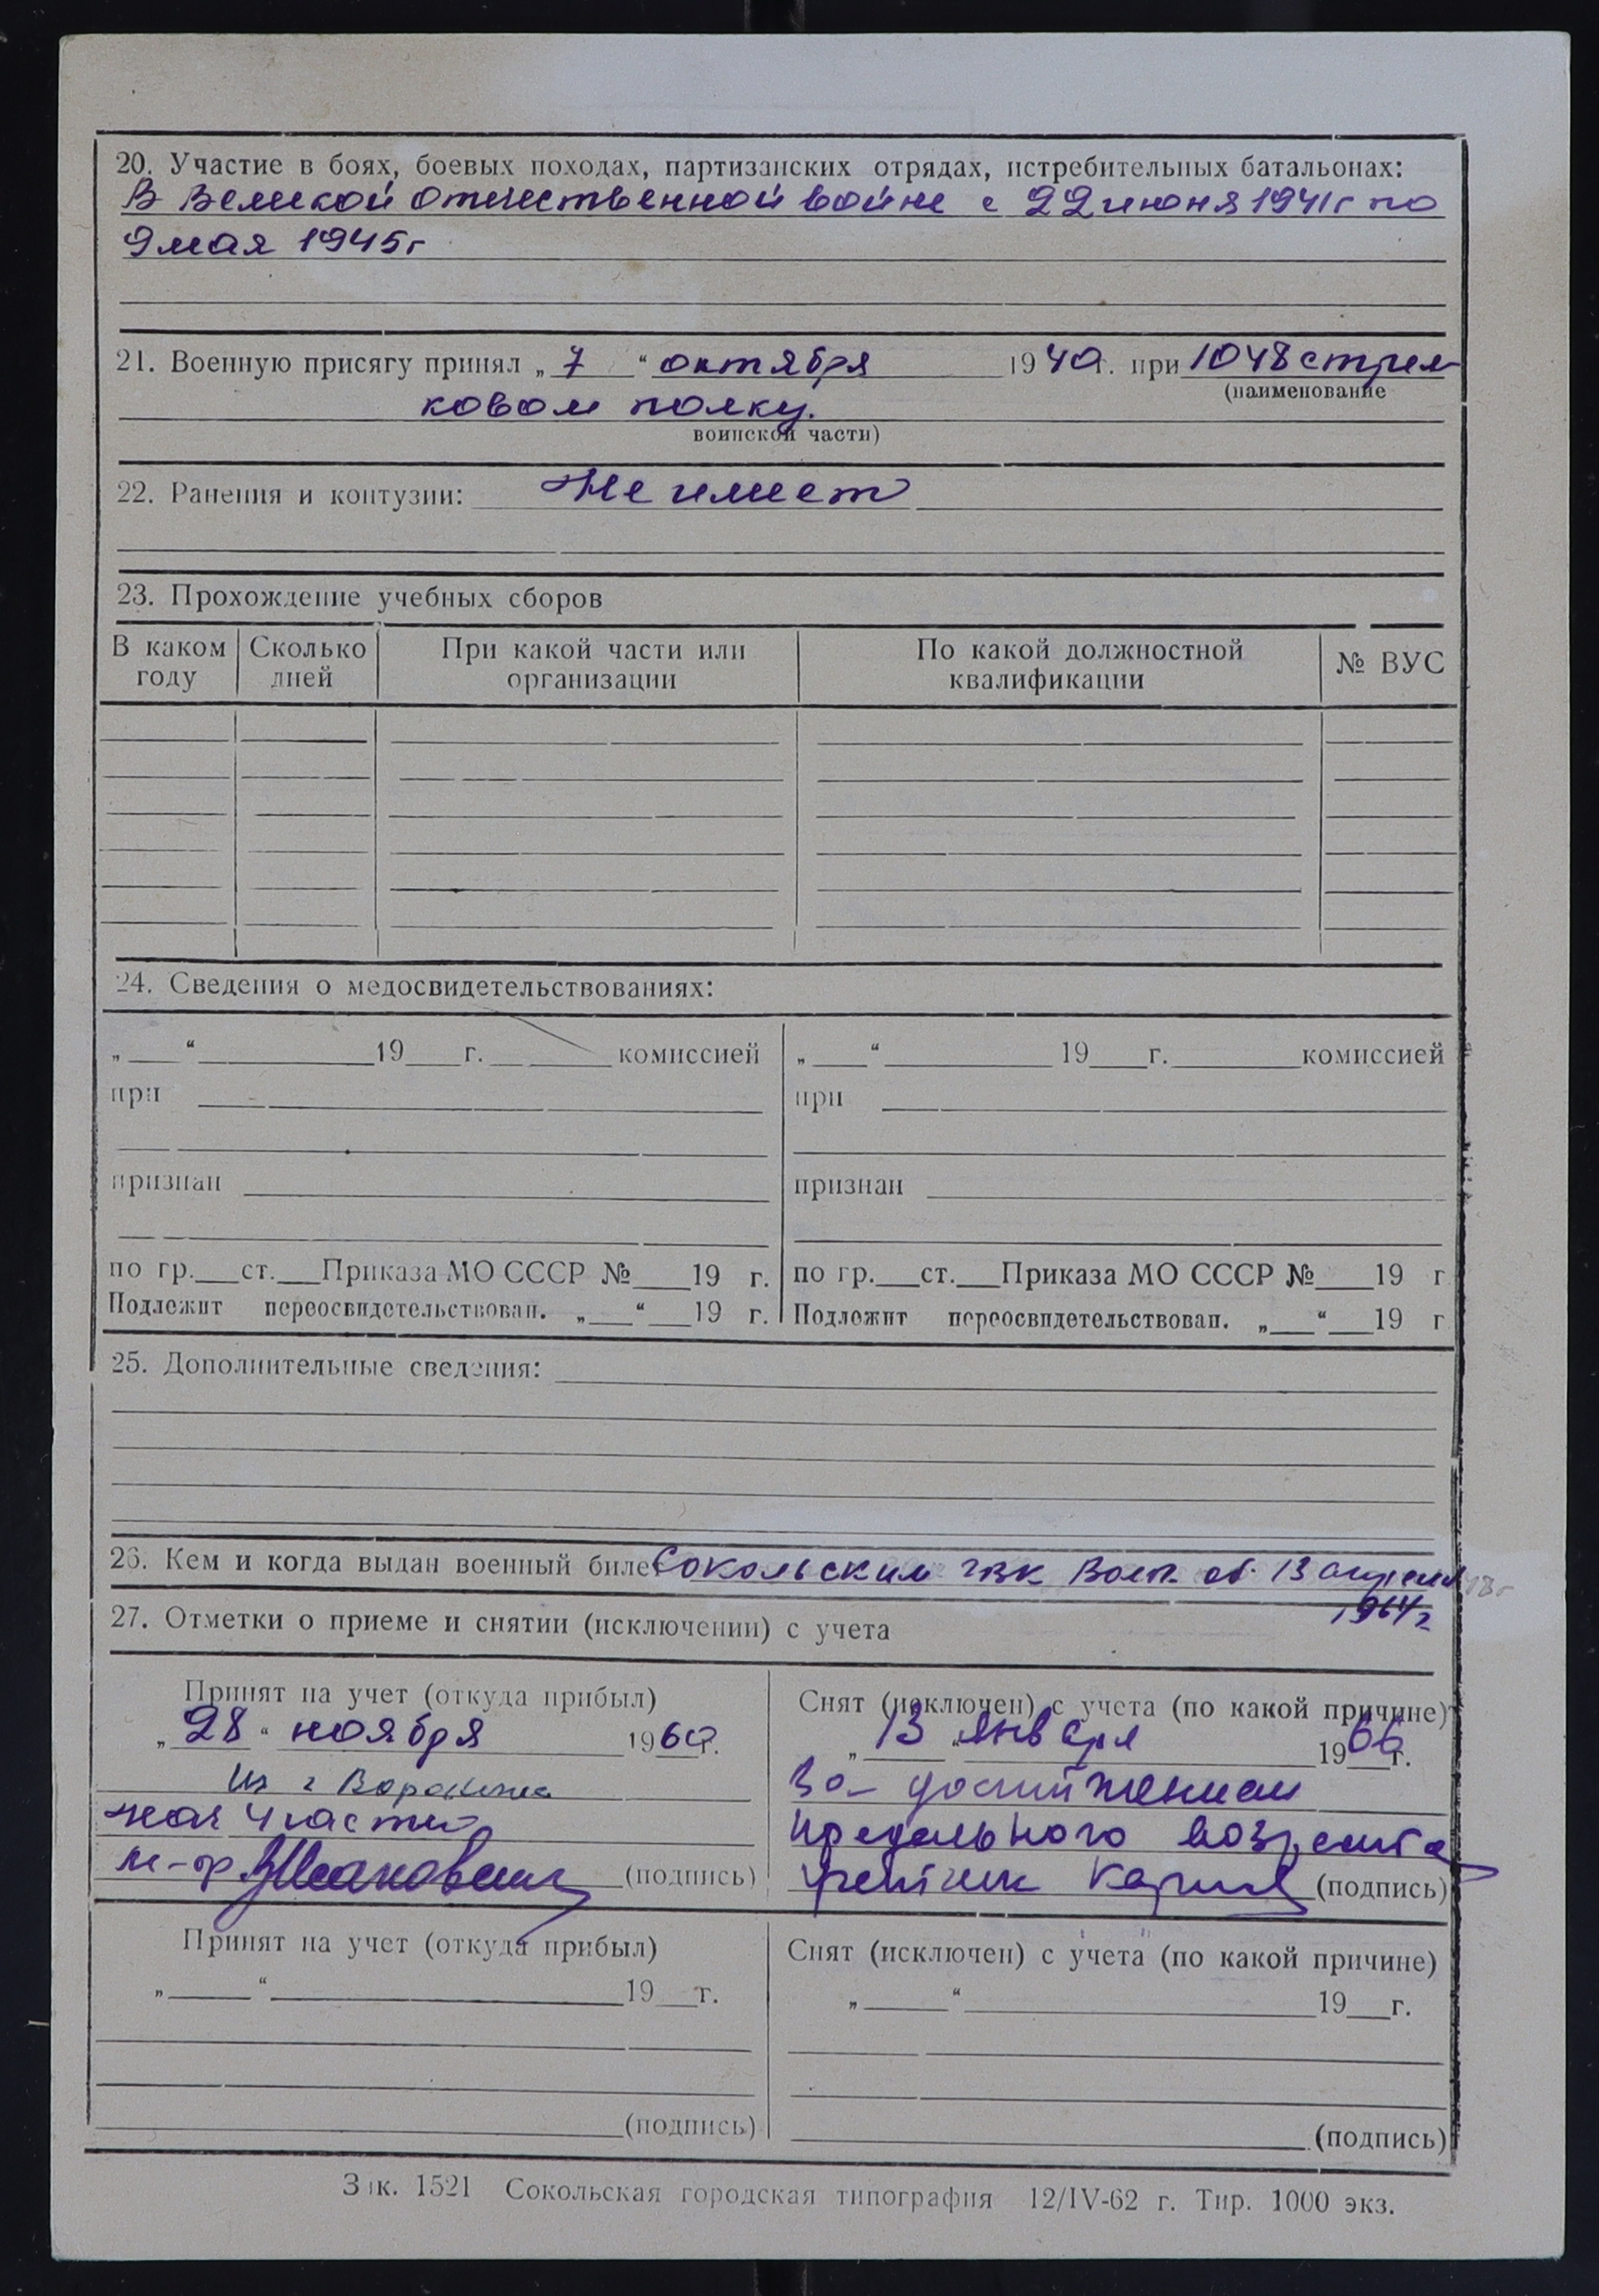 20. Участие в боях, боевых походах, партизанских отрядах, истребительных батальонах:
В Великой Отечественной войне с 22 июня 1941г по
9 мая 1945г
21. Военную присягу принял „ 7 “ октября 1940г. при 1048 стрел
(наименование
ковом полку.
воинской части)
22. Ранения и контузии: Не имеет
23. Прохождение учебных сборов
В каком году | Сколько дней | При какой части или организации | По какой должностной квалификации | № ВУС
24. Сведения о медосвидетельствованиях:
„___“ ___ 19___г. ___ комиссией
при
признан
по гр.___ст.___Приказа МО СССР №___19 г.
Подлежит переосвидетельствован. „___“___19 г.
„___“ ___ 19___г. ___ комиссией
при
признан
по гр.___ст.___Приказа МО СССР №___19 г
Подлежит переосвидетельствован. „___“___19 г
25. Дополнительные сведения:
26. Кем и когда выдан военный билет Сокольским ГВК Вол. об. 13 апреля
1964г
27. Отметки о приеме и снятии (исключении) с учета
Принят на учет (откуда прибыл)
„ 28 “ ноября 1960г.
Из г Воронежа
нач 4 части
м-р (подпись)
Снят (исключен) с учета (по какой причине)
„ 13 “ января 1966г.
За достижением
предельного возраста
(подпись)
Принят на учет (откуда прибыл)
„___“ ___ 19___г.
(подпись)
Снят (исключен) с учета (по какой причине)
„___“ ___ 19___г.
(подпись)
Зак. 1521 Сокольская городская типография 12/IV-62 г. Тир. 1000 экз.